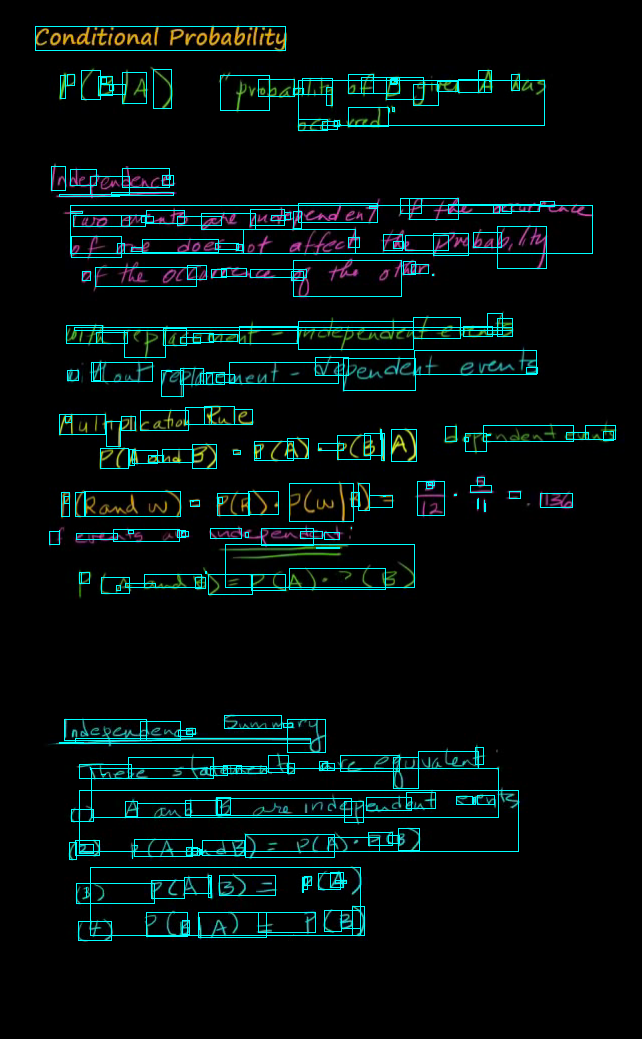 Conditional Probability
P(B|A) "probability of B given A has
occurred"
Independence
Two events are independent if the occurrence
of one does not affect the probability
of the occurrence of the other.
with replacement - independent events
without replacement - dependent events
Multiplication Rule
P(A and B) = P(A) · P(B|A) dependent events
P(R and W) = P(R) · P(W|R) = /12 · /11 = .136
if events are independent:
P(A and B) = P(A) · P(B)
Independence Summary
These statements are equivalent:
(1) A and B are independent events
(2) P(A and B) = P(A) · P(B)
(3) P(A|B) = P(A)
(4) P(B|A) = P(B)